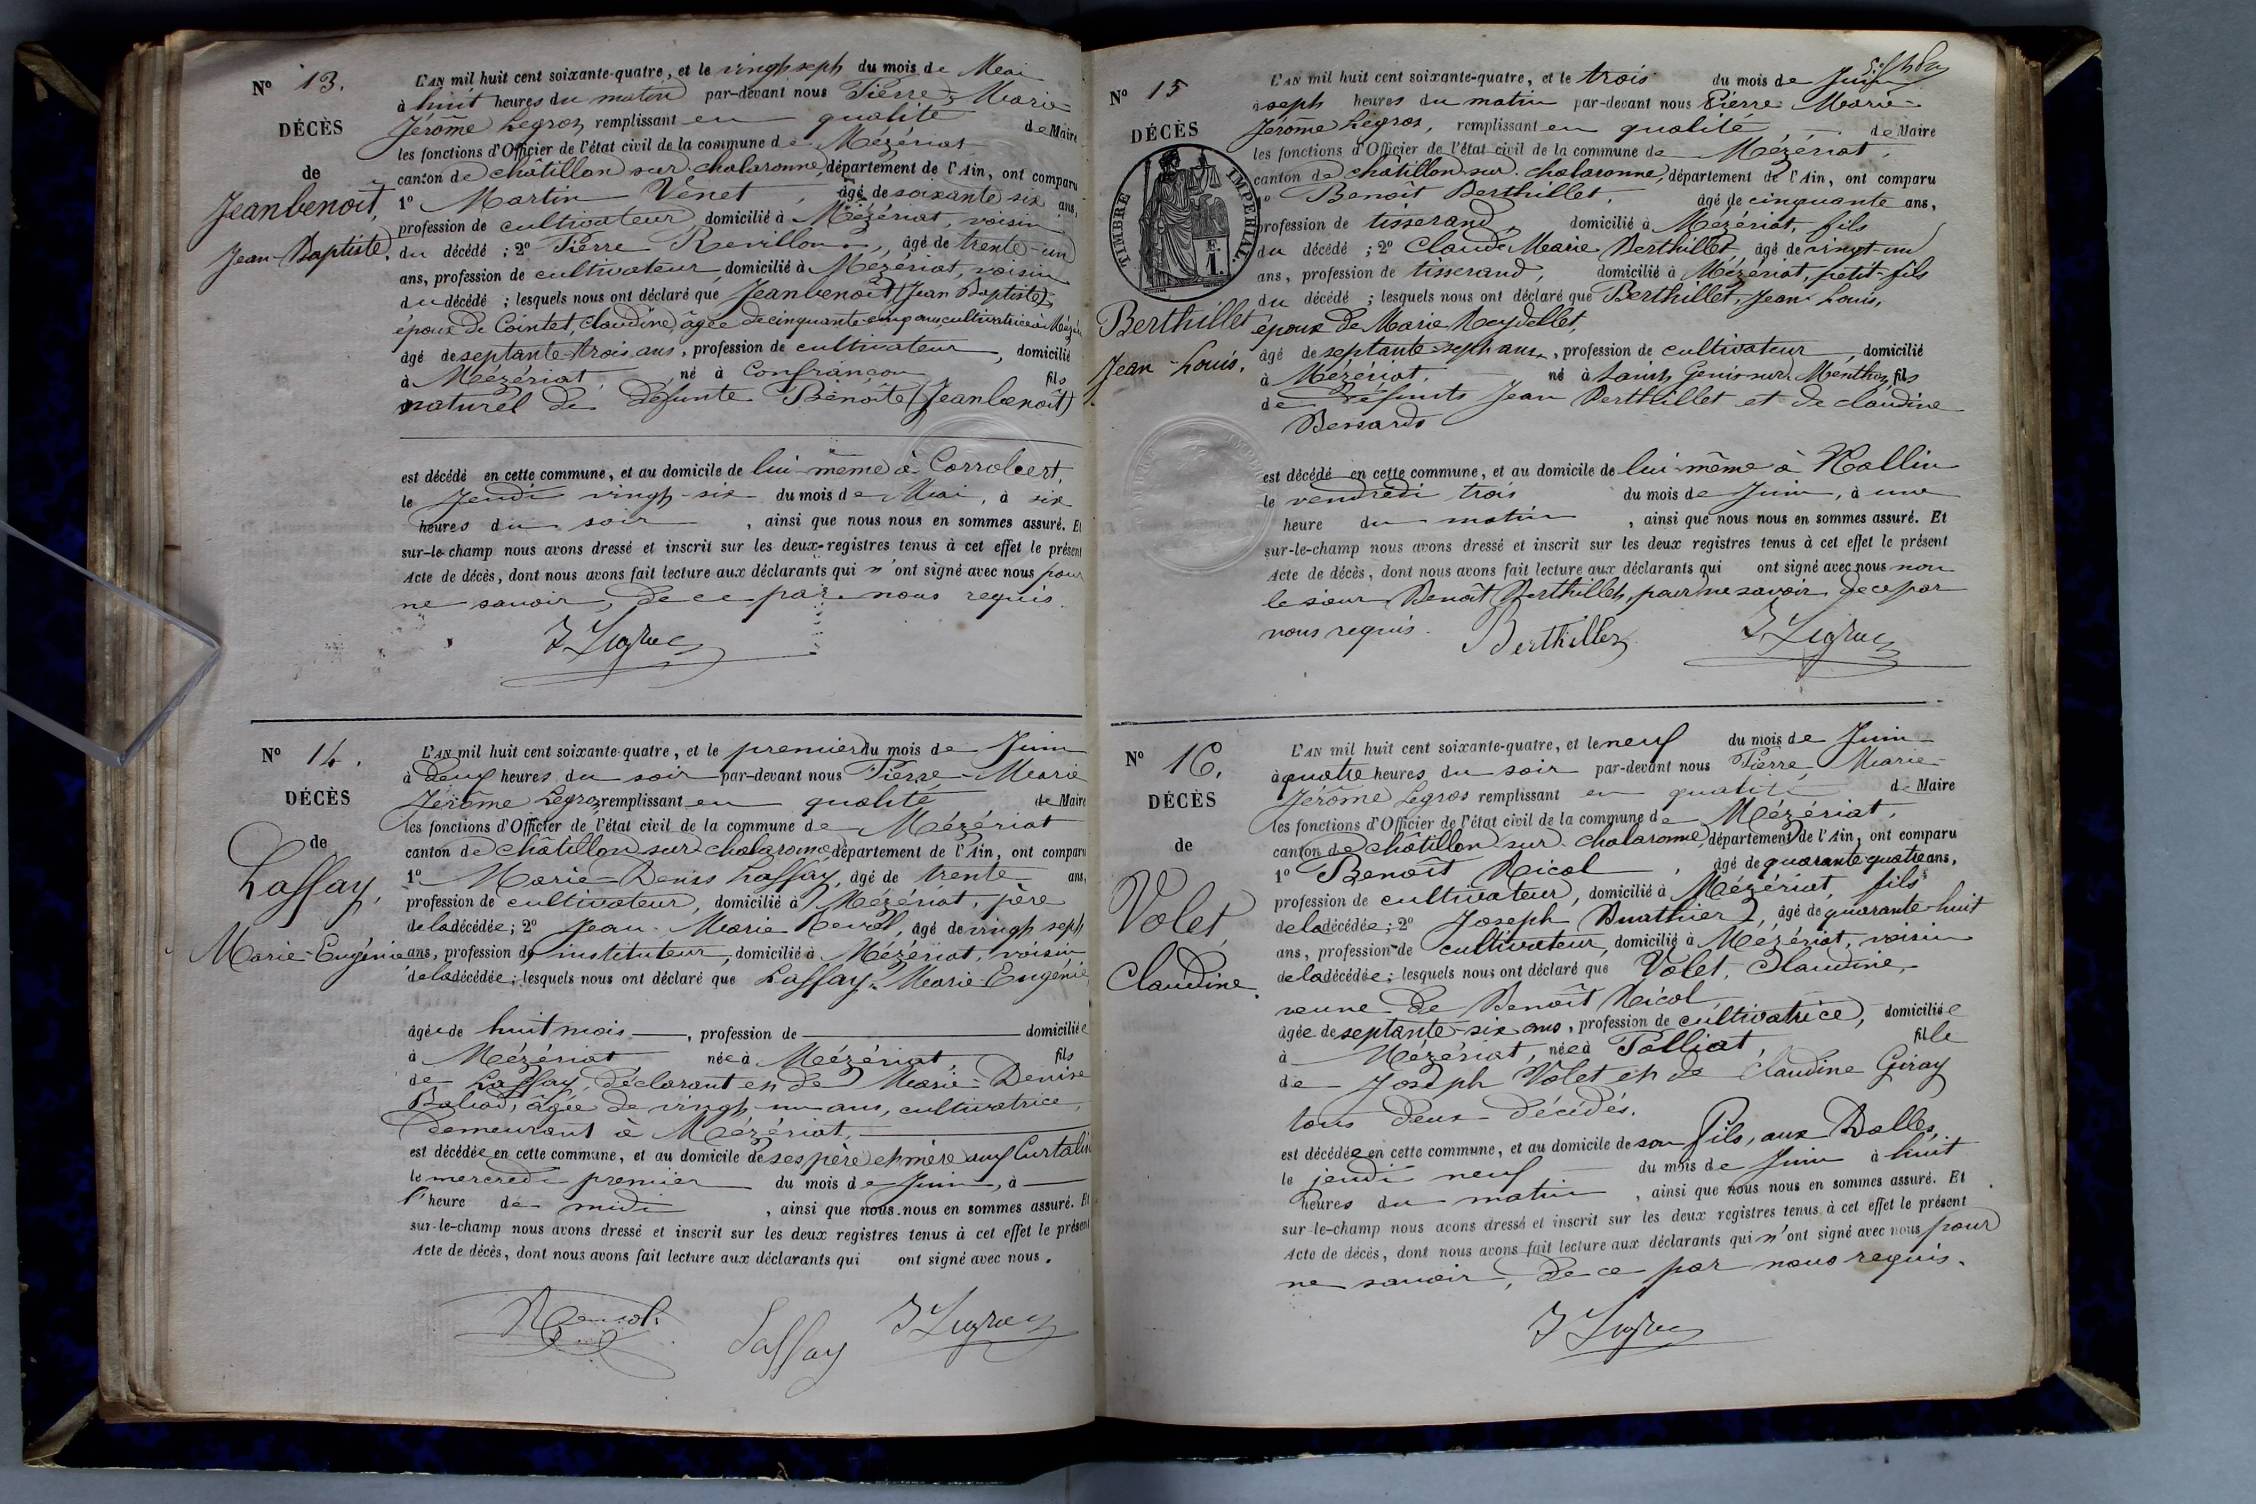 N° 13.
DÉCÈS
de
Jeanbenoit,
Jean-Baptiste.
L'AN mil huit cent soixante-quatre, et le vingt sept du mois de Mai
à huit heures du matin par-devant nous Pierre-Marie
Jérôme Legros, remplissant en qualité de Maire
les fonctions d'Officier de l'état civil de la commune de Mézériat
canton de châtillon sur chalaronne, département de l'Ain, ont comparu
1° Martin Venet, âgé de soixante six ans,
profession de cultivateur domicilié à Mézériat, voisin
du décédé ; 2° Pierre Revillon, âgé de trente-un
ans, profession de cultivateur domicilié à Mézériat, voisin
du décédé ; lesquels nous ont déclaré que Jeanbenoit (Jean Baptiste),
époux de Cointet, Claudine, âgée de cinquante-cinq ans, cultivatrice à
âgé de septante-trois ans, profession de cultivateur, domicilié
à Mézériat, né à Confrançon fils
naturel de défunte Benoîte (Jeanbenoît)
est décédé en cette commune, et au domicile de lui-même à Corrobert,
le Jeudi vingt-six du mois de Mai, à six
heures du soir, ainsi que nous nous en sommes assuré. Et
sur-le-champ nous avons dressé et inscrit sur les deux registres tenus à cet effet le présent
Acte de décès, dont nous avons fait lecture aux déclarants qui n'ont signé avec nous pour
ne savoir, de ce par nous requis.
J Legros
N° 14.
DÉCÈS
de
Laffay,
Marie-Eugénie
L'AN mil huit cent soixante-quatre, et le premier du mois de Juin
à deux heures du soir par-devant nous Pierre-Marie
Jérôme Legros remplissant en qualité de Maire
les fonctions d'Officier de l'état civil de la commune de Mézériat
canton de châtillon sur chalaronne département de l'Ain, ont comparu
1° Marie-Denis Laffay, âgé de trente ans,
profession de cultivateur, domicilié à Mézériat, père
de la décédée ; 2° Jean-Marie, âgé de vingt sept
ans, profession de instituteur, domicilié à Mézériat, voisin
de la décédée ; lesquels nous ont déclaré que Laffay, Marie-Eugénie
âgée de huit mois, profession de domiciliée
à Mézériat née à Mézériat fils
de Laffay, déclarant et de Marie-Denise
âgée de vingt-un ans, cultivatrice,
demeurant à Mézériat,
est décédée en cette commune, et au domicile de ses père et mère aux
le mercredi premier du mois de Juin, à
l'heure de midi, ainsi que nous nous en sommes assuré. Et
sur-le-champ nous avons dressé et inscrit sur les deux registres tenus à cet effet le présent
Acte de décès, dont nous avons fait lecture aux déclarants qui ont signé avec nous.
Laffay J Legros
N° 15
DÉCÈS
TIMBRE IMPÉRIAL.
Berthillet
Jean-Louis.
L'AN mil huit cent soixante-quatre, et le trois du mois de Juin
à sept heures du matin par-devant nous Pierre Marie-
Jérôme Legros, remplissant en qualité de Maire
les fonctions d'Officier de l'état civil de la commune de Mézériat,
canton de châtillon sur chalaronne, département de l'Ain, ont comparu
1° Benoît Berthillet, âgé de cinquante ans,
profession de tisserand, domicilié à Mézériat, fils
du décédé ; 2° Claude Marie Berthillet âgé de vingt-un
ans, profession de tisserand, domicilié à Mézériat, petit-fils
du décédé ; lesquels nous ont déclaré que Berthillet, Jean-Louis,
époux de Marie Reydellet,
âgé de septante-sept ans, profession de cultivateur, domicilié
à Mézériat, né à Saint Genis sur Menthon, fils
de défunts Jean Berthillet et de claudine
Bernard
est décédé en cette commune, et au domicile de lui-même à
le vendredi trois du mois de Juin, à une
heure du matin, ainsi que nous nous en sommes assuré. Et
sur-le-champ nous avons dressé et inscrit sur les deux registres tenus à cet effet le présent
Acte de décès, dont nous avons fait lecture aux déclarants qui ont signé avec nous non
le sieur Benoît Berthillet, pour ne savoir, de ce par
nous requis. Berthillet J Legros
N° 16.
DÉCÈS
de
Volet,
Claudine.
L'AN mil huit cent soixante-quatre, et le neuf du mois de Juin
à quatre heures du soir par-devant nous Pierre, Marie-
Jérôme Legros remplissant en qualité de Maire
les fonctions d'Officier de l'état civil de la commune de Mézériat,
canton de châtillon sur chalaronne, département de l'Ain, ont comparu
1° Benoît Nicol, âgé de quarante-quatre ans,
profession de cultivateur, domicilié à Mézériat, fils
de la décédée ; 2° Joseph Buathier, âgé de quarante-huit
ans, profession de cultivateur, domicilié à Mézériat, voisin
de la décédée ; lesquels nous ont déclaré que Volet, Claudine,
veuve de Benoît Nicol
âgée de septante-six ans, profession de cultivatrice, domiciliée
à Mézériat, née à Polliat, fille
de Joseph Volet et de Claudine Giray
tous deux décédés.
est décédée en cette commune, et au domicile de son fils, aux
le jeudi neuf du mois de Juin à huit
heures du matin, ainsi que nous nous en sommes assuré. Et
sur-le-champ nous avons dressé et inscrit sur les deux registres tenus à cet effet le présent
Acte de décès, dont nous avons fait lecture aux déclarants qui n'ont signé avec nous pour
ne savoir, de ce par nous requis.
J Legros